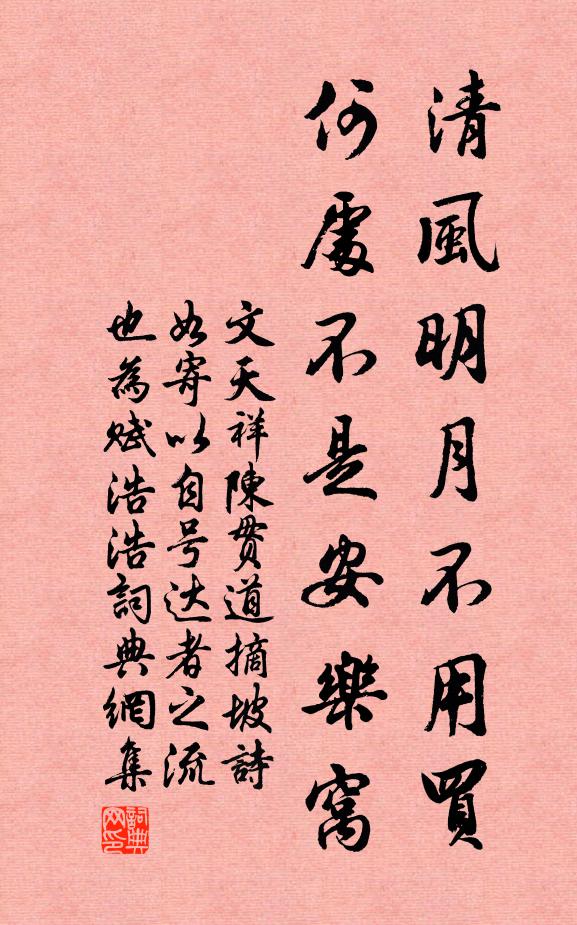 清風明月不用買
何處不是安樂窩
文天祥陳貫道摘坡詩
如寄以自号达者之流
也為賦浩浩詞典網集
詞典网印